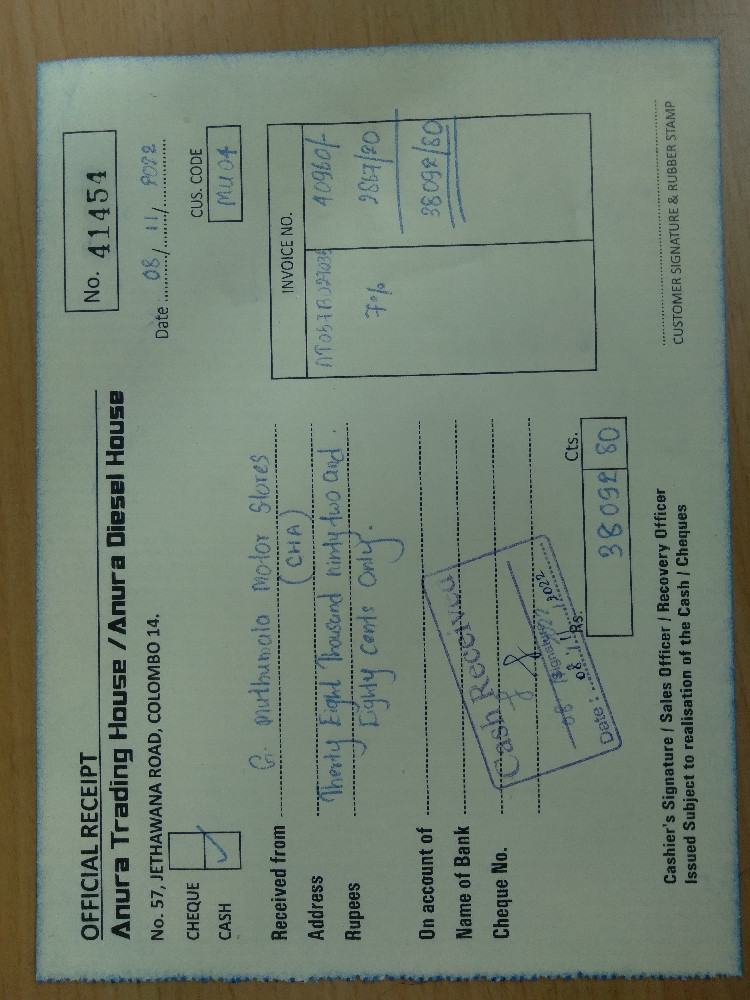 OFFICIAL RECEIPT
Anura Trading House / Anura Diesel House
No. 57, JETHAWANA ROAD, COLOMBO 14.
No. 41454
Date 08/11/2022
CUS. CODE
MU04
CHEQUE
CASH ✓
Received from G. Muthumala Motor Stores
Address (CHA)
Rupees Therty Eight Thousand ninty two and
Eighty Cents Only.
INVOICE NO.
40960/-
7% 2867/20
38092/80
On account of
Name of Bank
Cheque No.
Cash Received
Signature
Date: 08.11.2022
Rs. Cts.
38092 80
Cashier's Signature / Sales Officer / Recovery Officer
Issued Subject to realisation of the Cash / Cheques
CUSTOMER SIGNATURE & RUBBER STAMP